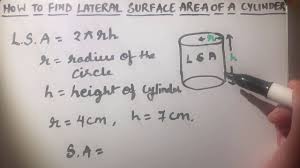 HOW TO FIND LATERAL SURFACE AREA OF A CYLINDER
L.S.A = 2πrh
r = radius of the circle
h = height of cylinder
r = 4cm, h = 7cm.
S.A =
r
LSA
h